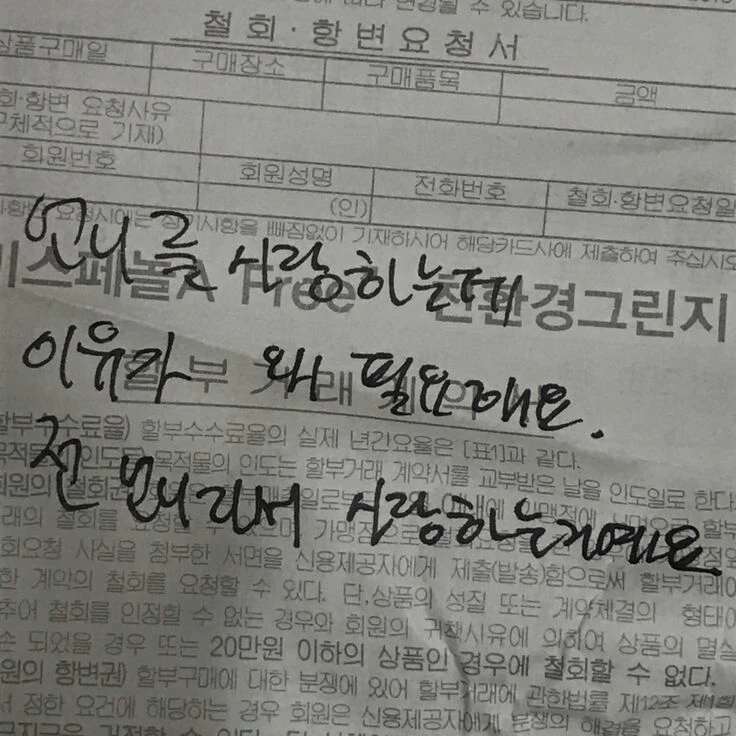 변경될 수 있습니다.
철회·항변요청서
상품구매일 구매장소 구매품목 금액
회·항변 요청사유
구체적으로 기재)
회원번호 회원성명 전화번호 철회·항변요청일
(인)
빠짐없이 기재하시어 해당카드사에 제출하여 주십시오
언니를 사랑하는데
이스페놀A Free 친환경그린지
이유가 왜 필요해요.
할부수수료율) 할부수수료율의 실제 년간요율은 [표1]과 같다.
목적물의 인도는 할부거래 계약서를 교부받은 날을 인도일로 한다
전 언니라서 사랑하는거예요
회요청 사실을 첨부한 서면을 신용제공자에게 제출(발송)함으로써 할부거래에
한 계약의 철회를 요청할 수 있다. 단,상품의 성질 또는 계약체결의 형태에
추어 철회를 인정할 수 없는 경우와 회원의 귀책사유에 의하여 상품의 멸실
손 되었을 경우 또는 20만원 이하의 상품인 경우에 철회할 수 없다.
원의 항변권) 할부구매에 대한 분쟁에 있어 할부거래에 관한법률 제12조 제1항
서 정한 요건에 해당하는 경우 회원은 신용제공자에게 분쟁의 해결을 요청하고